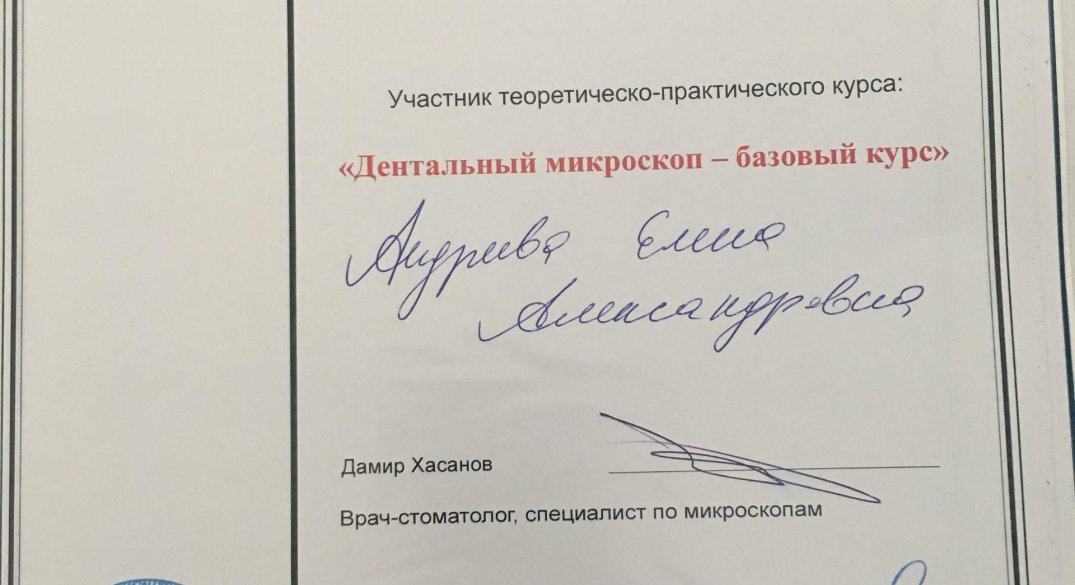 Участник теоретическо-практического курса:
«Дентальный микроскоп – базовый курс»
Андреева Елена
Александровна
Дамир Хасанов
Врач-стоматолог, специалист по микроскопам